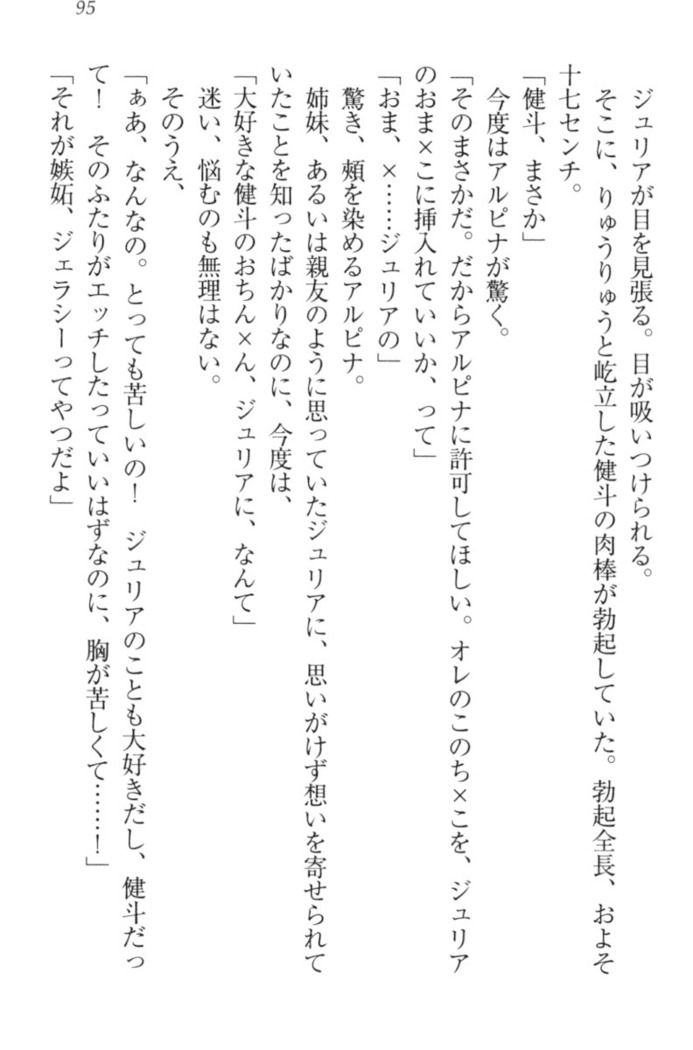 95
ジュリアが目を見張る。目が吸いつけられる。
そこに、りゅうりゅうと屹立した健斗の肉棒が勃起していた。勃起全長、およそ
十七センチ。
「健斗、まさか」
今度はアルピナが驚く。
「そのまさかだ。だからアルピナに許可してほしい。オレのこのち×こを、ジュリア
のおま×こに挿入れていいか、って」
「おま、×……ジュリアの」
驚き、頰を染めるアルピナ。
姉妹、あるいは親友のように思っていたジュリアに、思いがけず想いを寄せられて
いたことを知ったばかりなのに、今度は、
「大好きな健斗のおちん×ん、ジュリアに、なんて」
迷い、悩むのも無理はない。
そのうえ、
「ぁあ、なんなの。とっても苦しいの！　ジュリアのことも大好きだし、健斗だっ
て！　そのふたりがエッチしたっていいはずなのに、胸が苦しくて……！」
「それが嫉妬、ジェラシーってやつだよ」